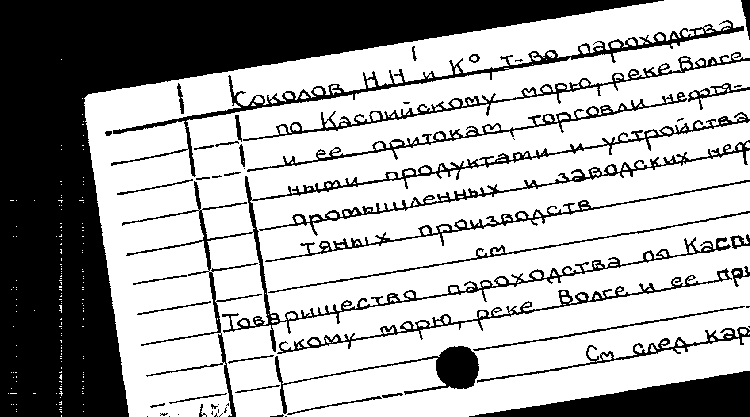 Соколов, Н.Н. и К°, т-во пароходства
по Каспийскому морю, реке Волге
и ее притокам, торговли нефтя-
ными продуктами и устройства
промышленных и заводских неф
тяных производств
см
Товарищество пароходства по Касп
скому морю, реке Волге и ее при
См след. кар